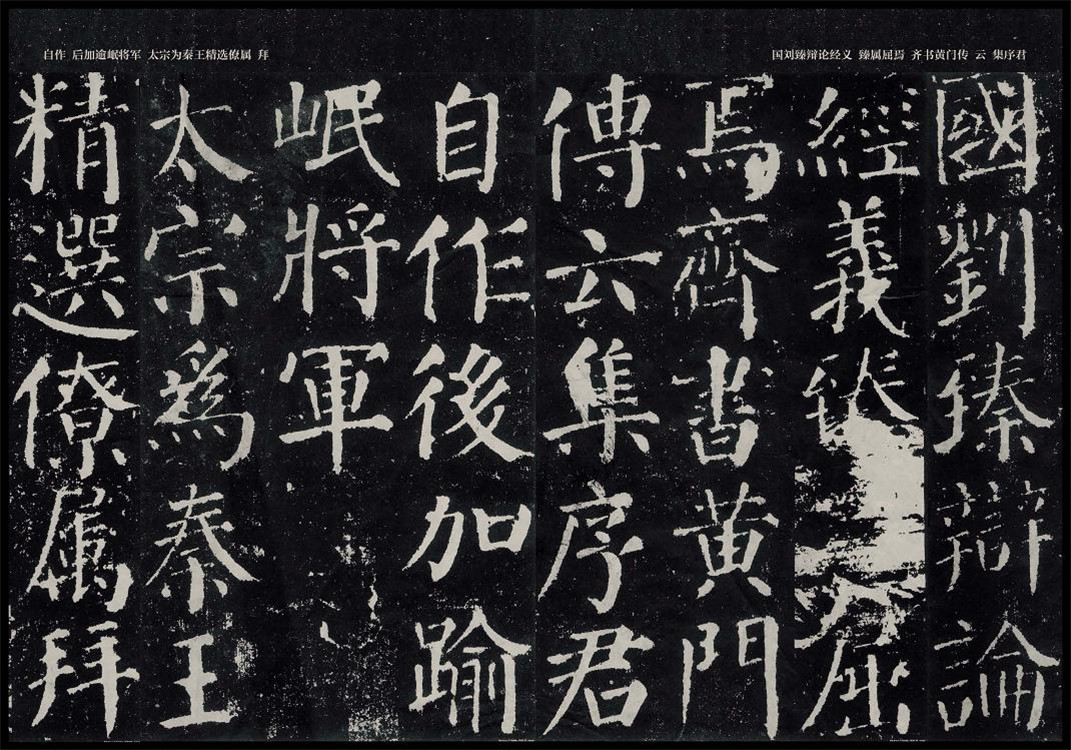 国刘臻辩论经义 臻属屈焉 齐书黄门传 云 集序君
自作 后加逾岷将军 太宗为秦王精选僚属 拜
國劉臻辯論
經義臻屈
焉齊書黄門
傳云集序君
自作後加踰
岷將軍
太宗爲秦王
精選僚屬拜